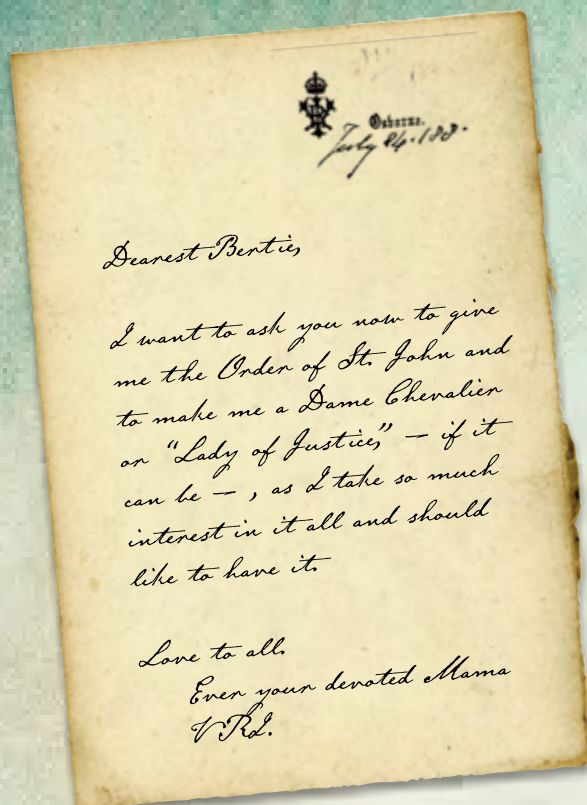 Osborne.
July 24. 188.
Dearest Bertie,
I want to ask you now to give
me the Order of St. John and
to make me a Dame Chevalier
or “Lady of Justice,” – if it
can be – , as I take so much
interest in it all and should
like to have it.
Love to all.
Ever your devoted Mama
VRI.